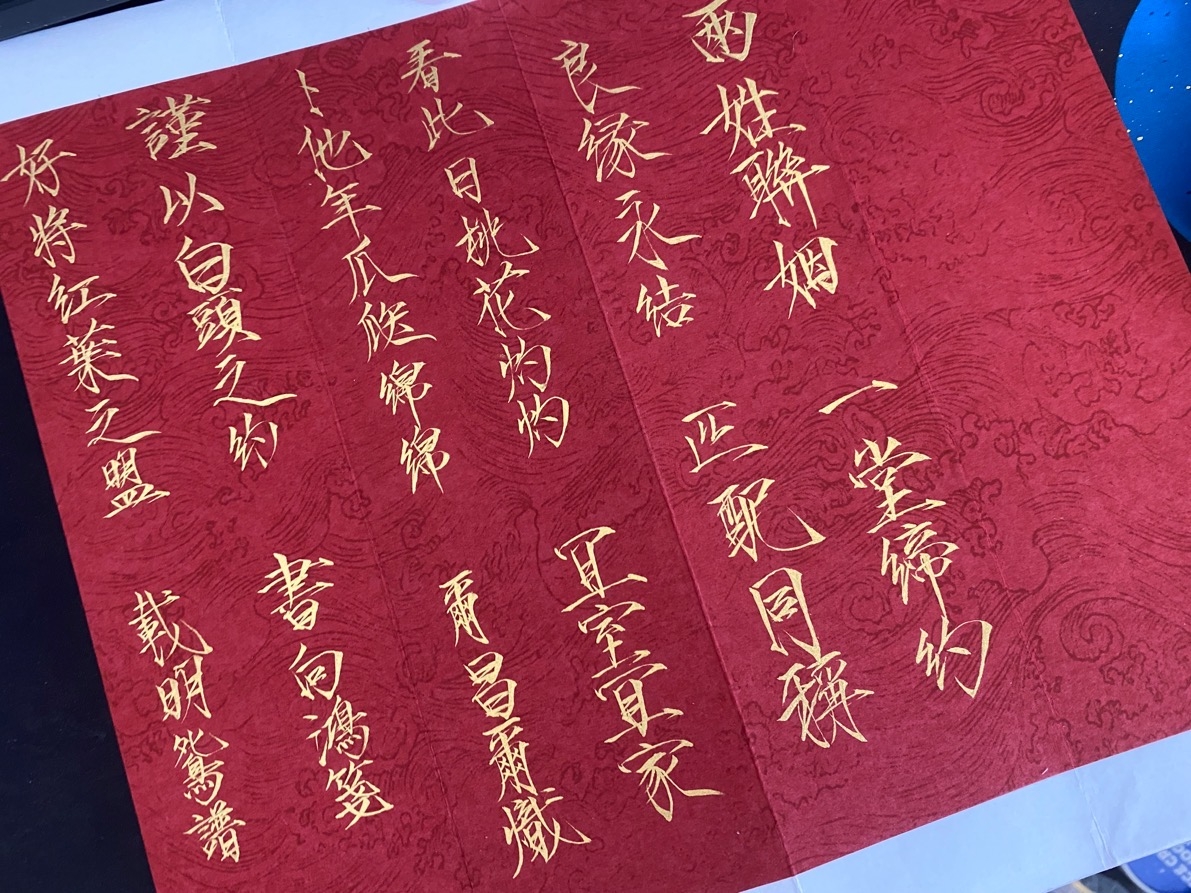 兩姓聯姻 一堂締約
良緣永結 匹配同稱
看此日桃花灼灼 宜室宜家
卜他年瓜瓞綿綿 爾昌爾熾
謹以白頭之約 書向鴻箋
好將紅葉之盟 載明鴛譜